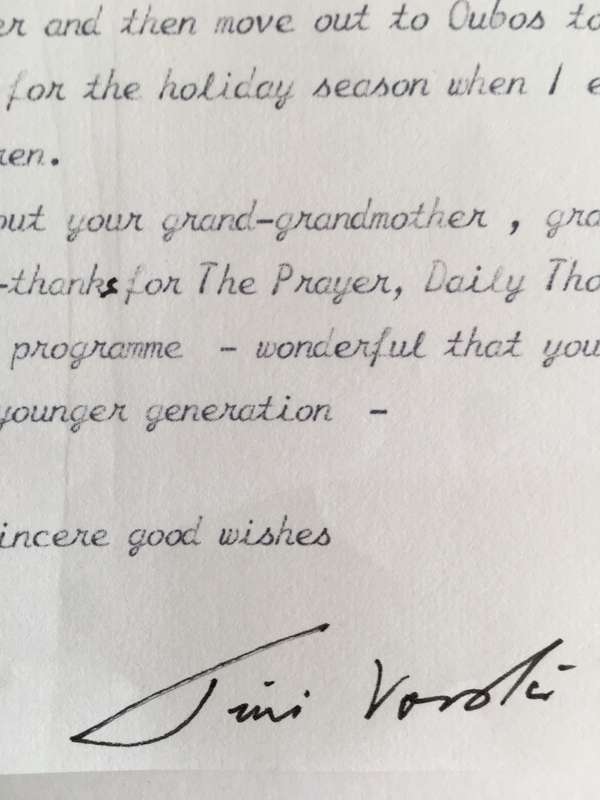 er and then move out to Oubos to
for the holiday season when I e
ren.
out your grand-grandmother , gra
-thanks for The Prayer, Daily Tho
programme - wonderful that you
younger generation -
incere good wishes